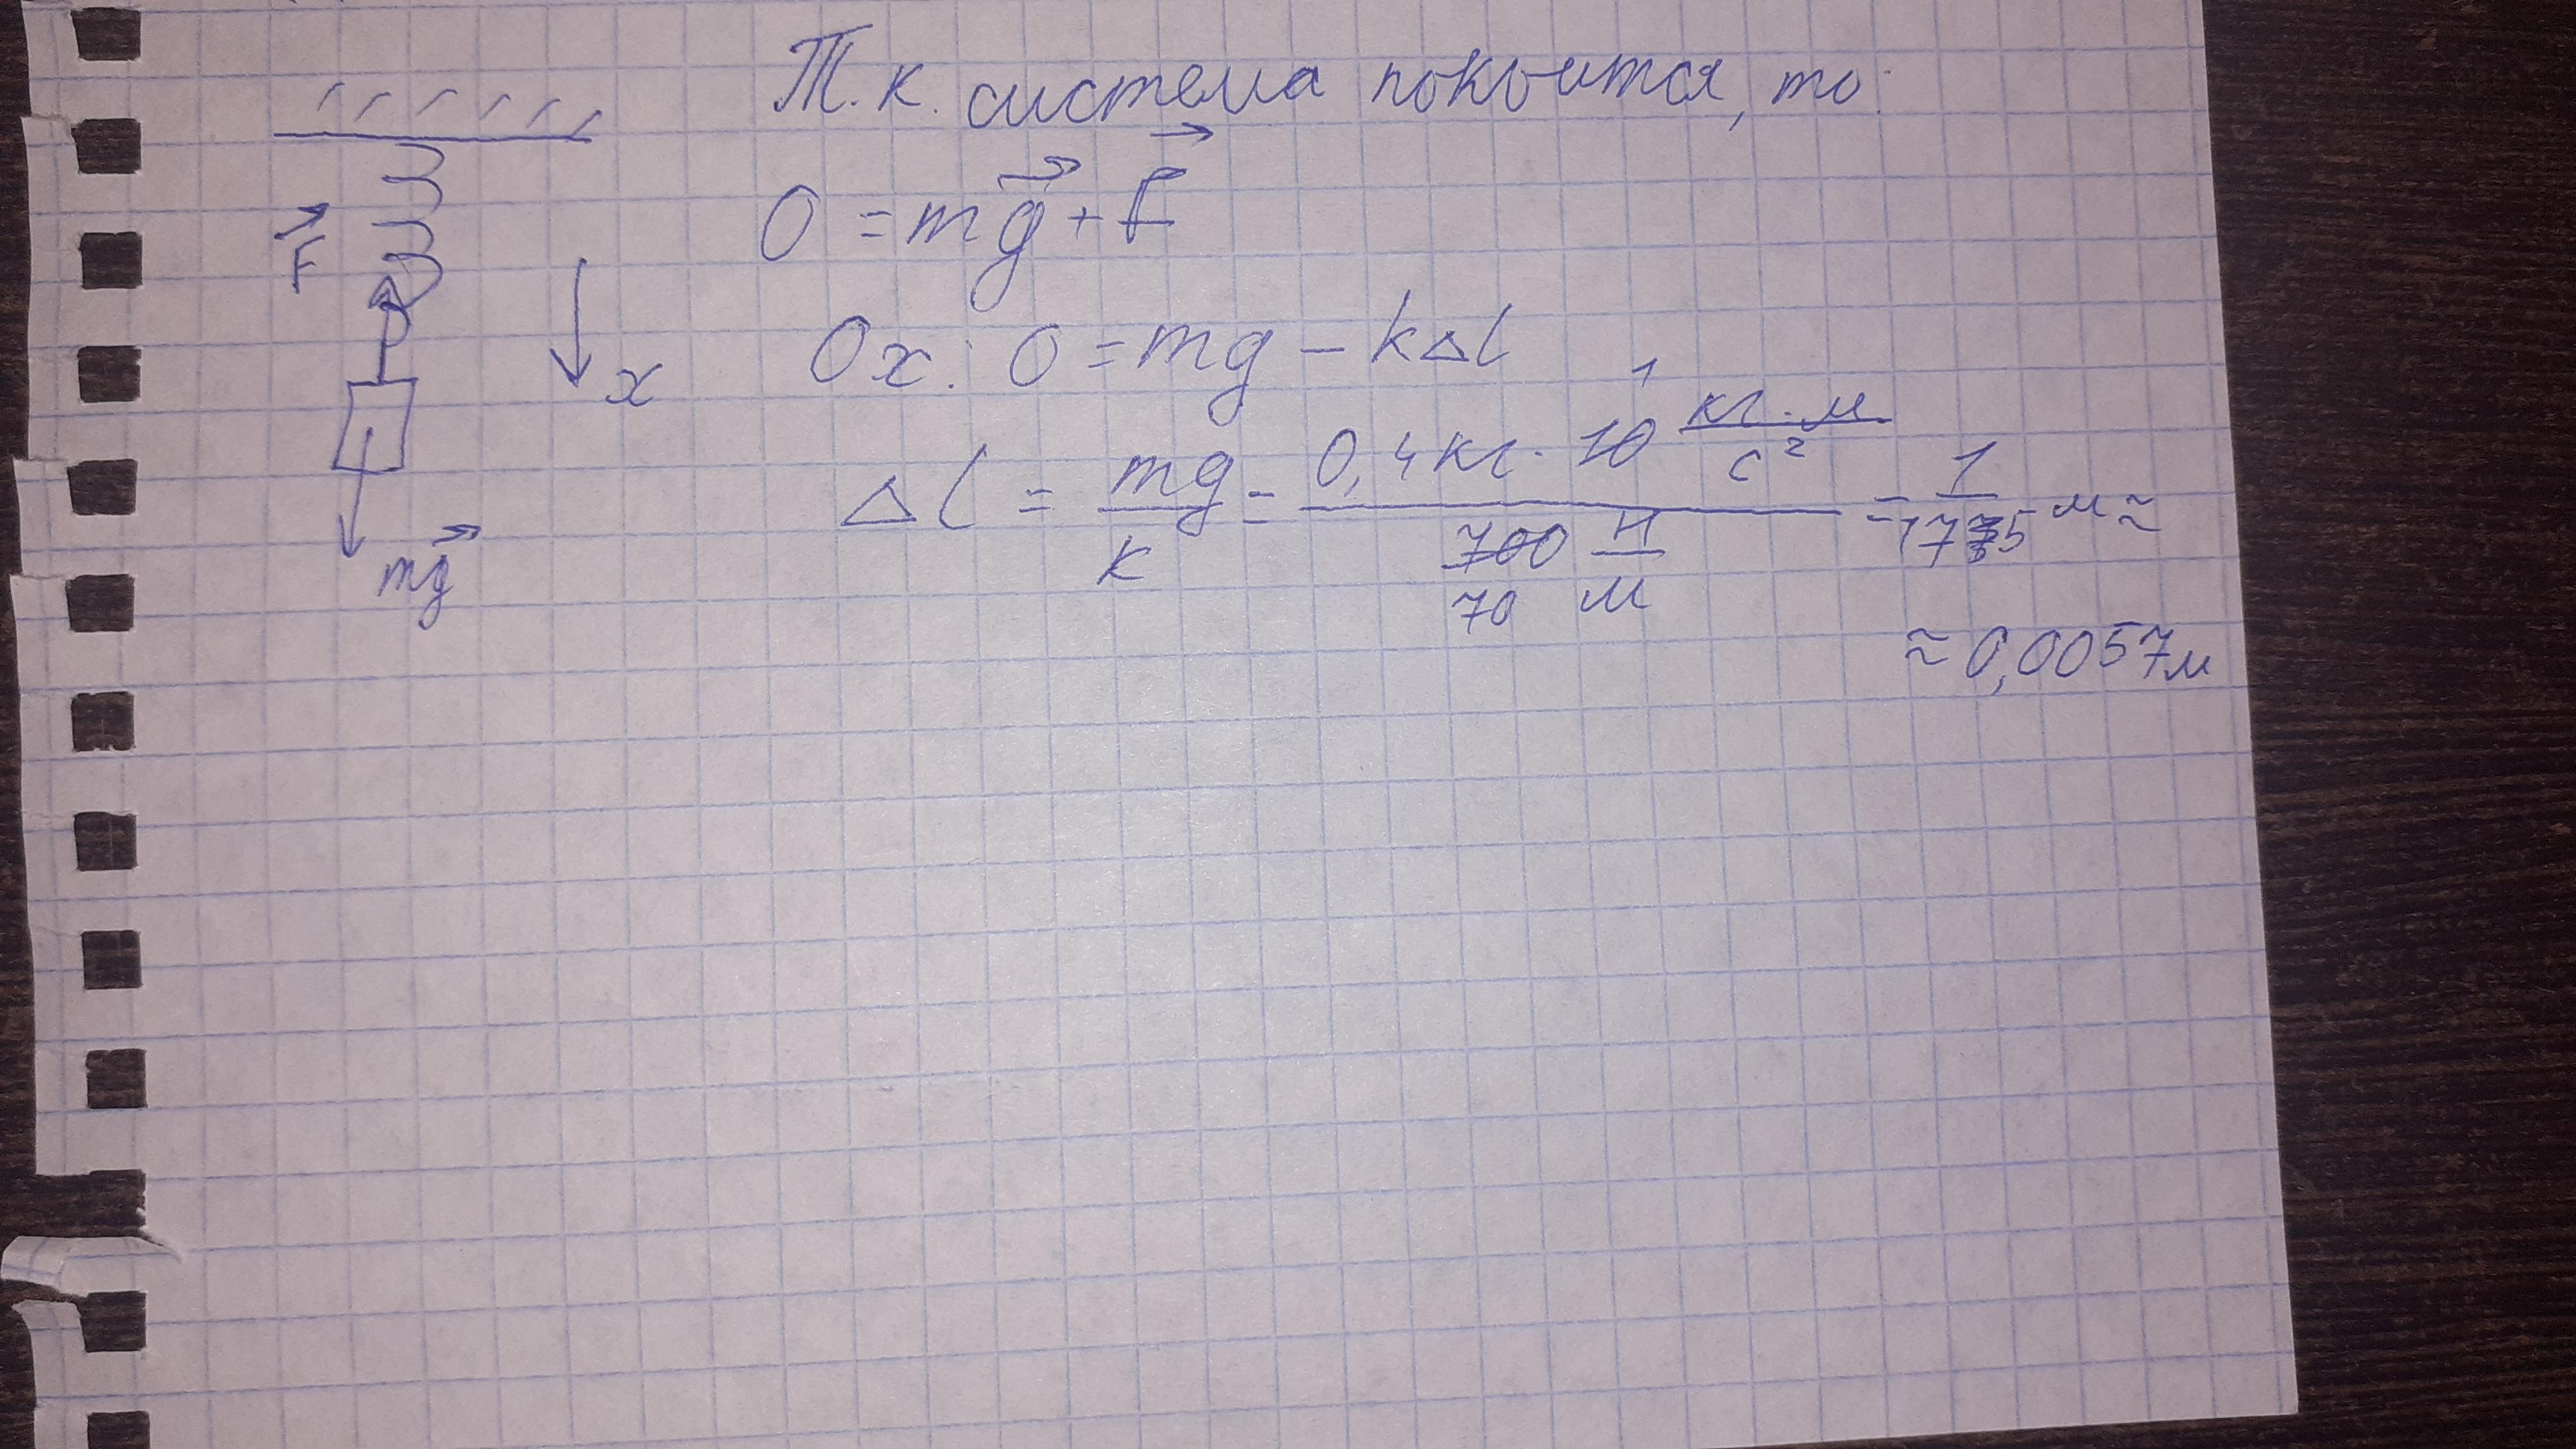 Т.к. система покоится, то:
0 = mg⃗ + F⃗
F⃗
x
mg⃗
Ox: 0 = mg - kΔl
Δl = mg/k = 0,4кг · 10 кг·м/с² / 700 Н/м = 1/175 м ≈
1
70
≈ 0,0057м